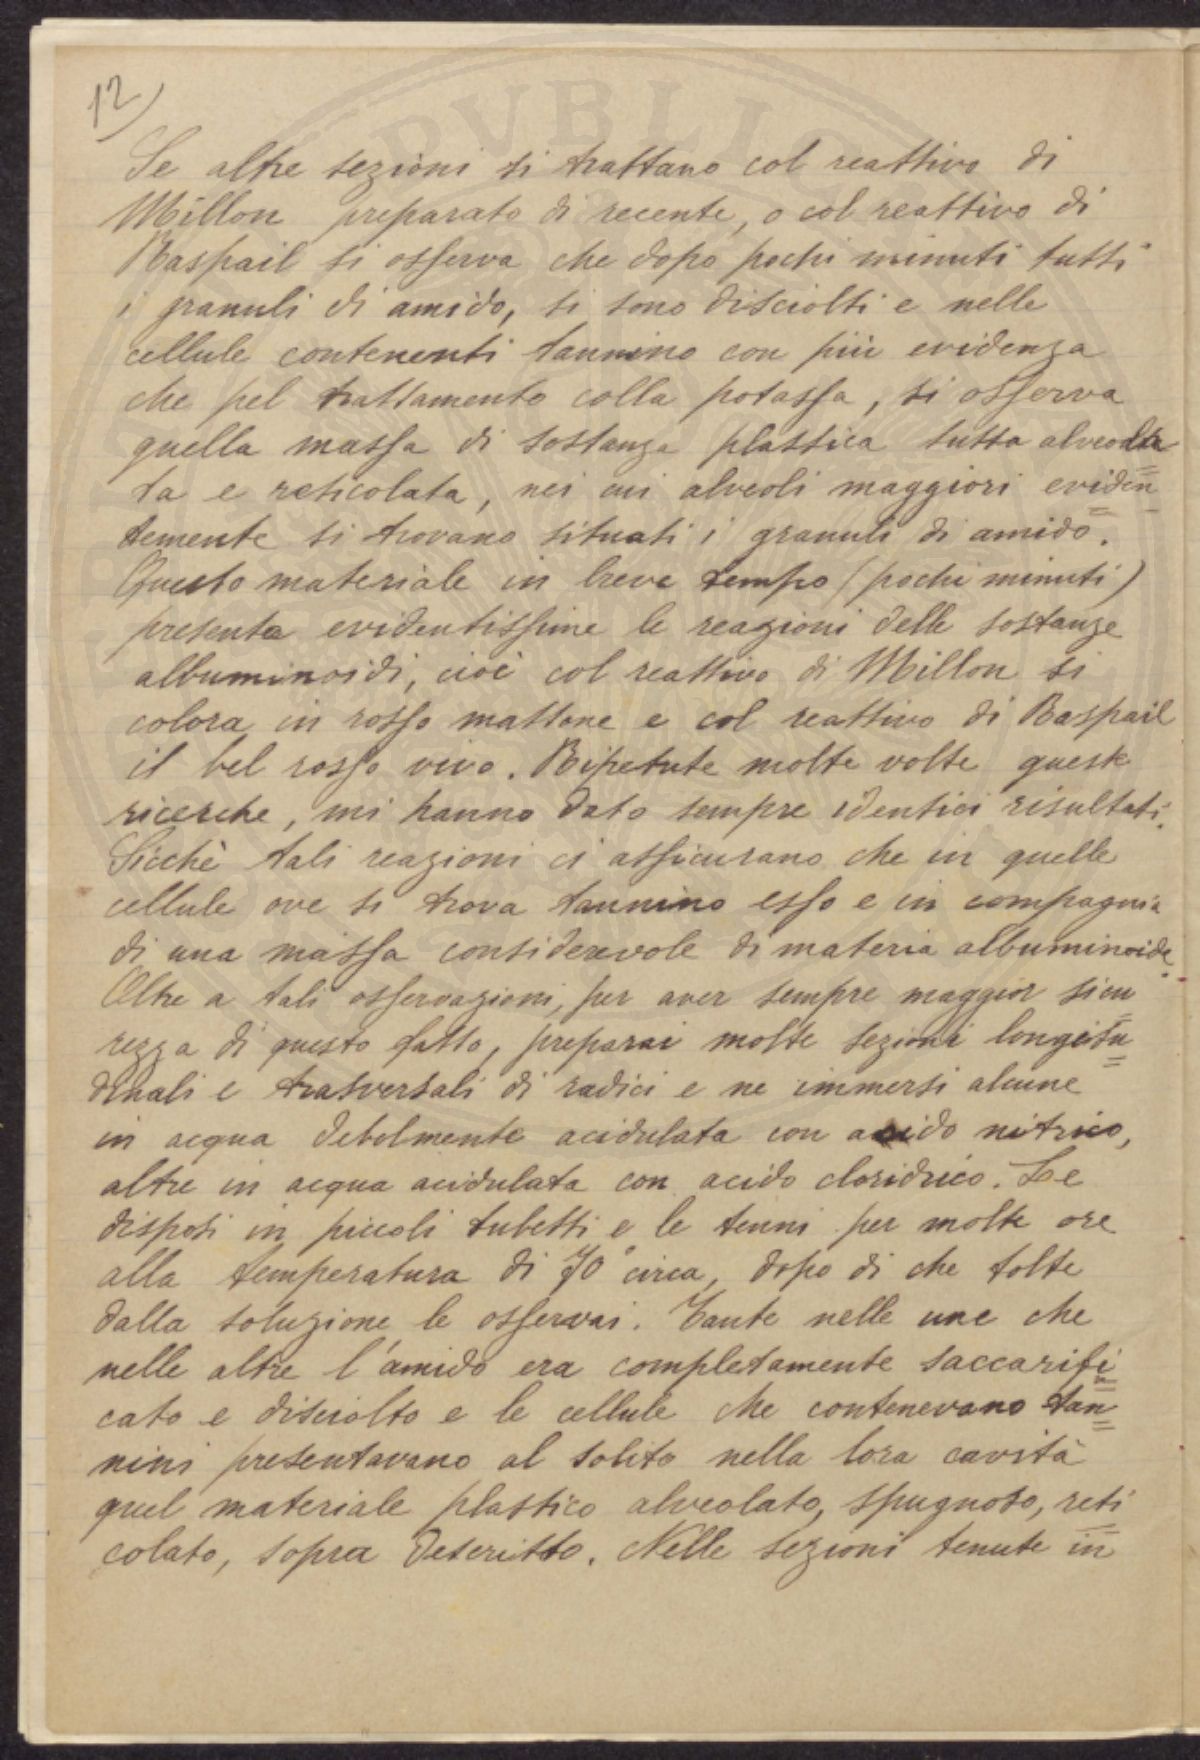 12)
Se altre sezioni si trattano col reattivo di
Millon preparato di recente, o col reattivo di
Raspail si osserva che dopo pochi minuti tutti
i granuli di amido, si sono disciolti e nelle
cellule contenenti tannino con più evidenza
che pel trattamento colla potassa, si osserva
quella massa di sostanza plastica tutta alveola
ta e reticolata, nei cui alveoli maggiori eviden
temente si trovano situati i granuli di amido.
Questo materiale in breve tempo (pochi minuti)
presenta evidentissime le reazioni delle sostanze
albuminoidi, cioè col reattivo di Millon si
colora in rosso mattone e col reattivo di Raspail
il bel rosso vivo. Ripetute molte volte queste
ricerche, mi hanno dato sempre identici risultati.
Sicchè tali reazioni ci assicurano che in quelle
cellule ove si trova tannino esso e in compagnia
di una massa considerevole di materia albuminoide.
Oltre a tali osservazioni, per aver sempre maggior sicu
rezza di questo fatto, preparai molte sezioni longitu
dinali e trasversali di radici e ne immersi alcune
in acqua debolmente acidulata con acido nitrico,
altre in acqua acidulata con acido cloridrico. Le
disposi in piccoli tubetti e le tenni per molte ore
alla temperatura di 70° circa, dopo di che tolte
dalla soluzione le osservai. Tante nelle une che
nelle altre l'amido era completamente saccarifi
cato e disciolto e le cellule che contenevano tan
nini presentavano al solito nella lora cavità
quel materiale plastico alveolato, spugnoso, reti
colato, sopra descritto. Nelle sezioni tenute in
PVBLICAE